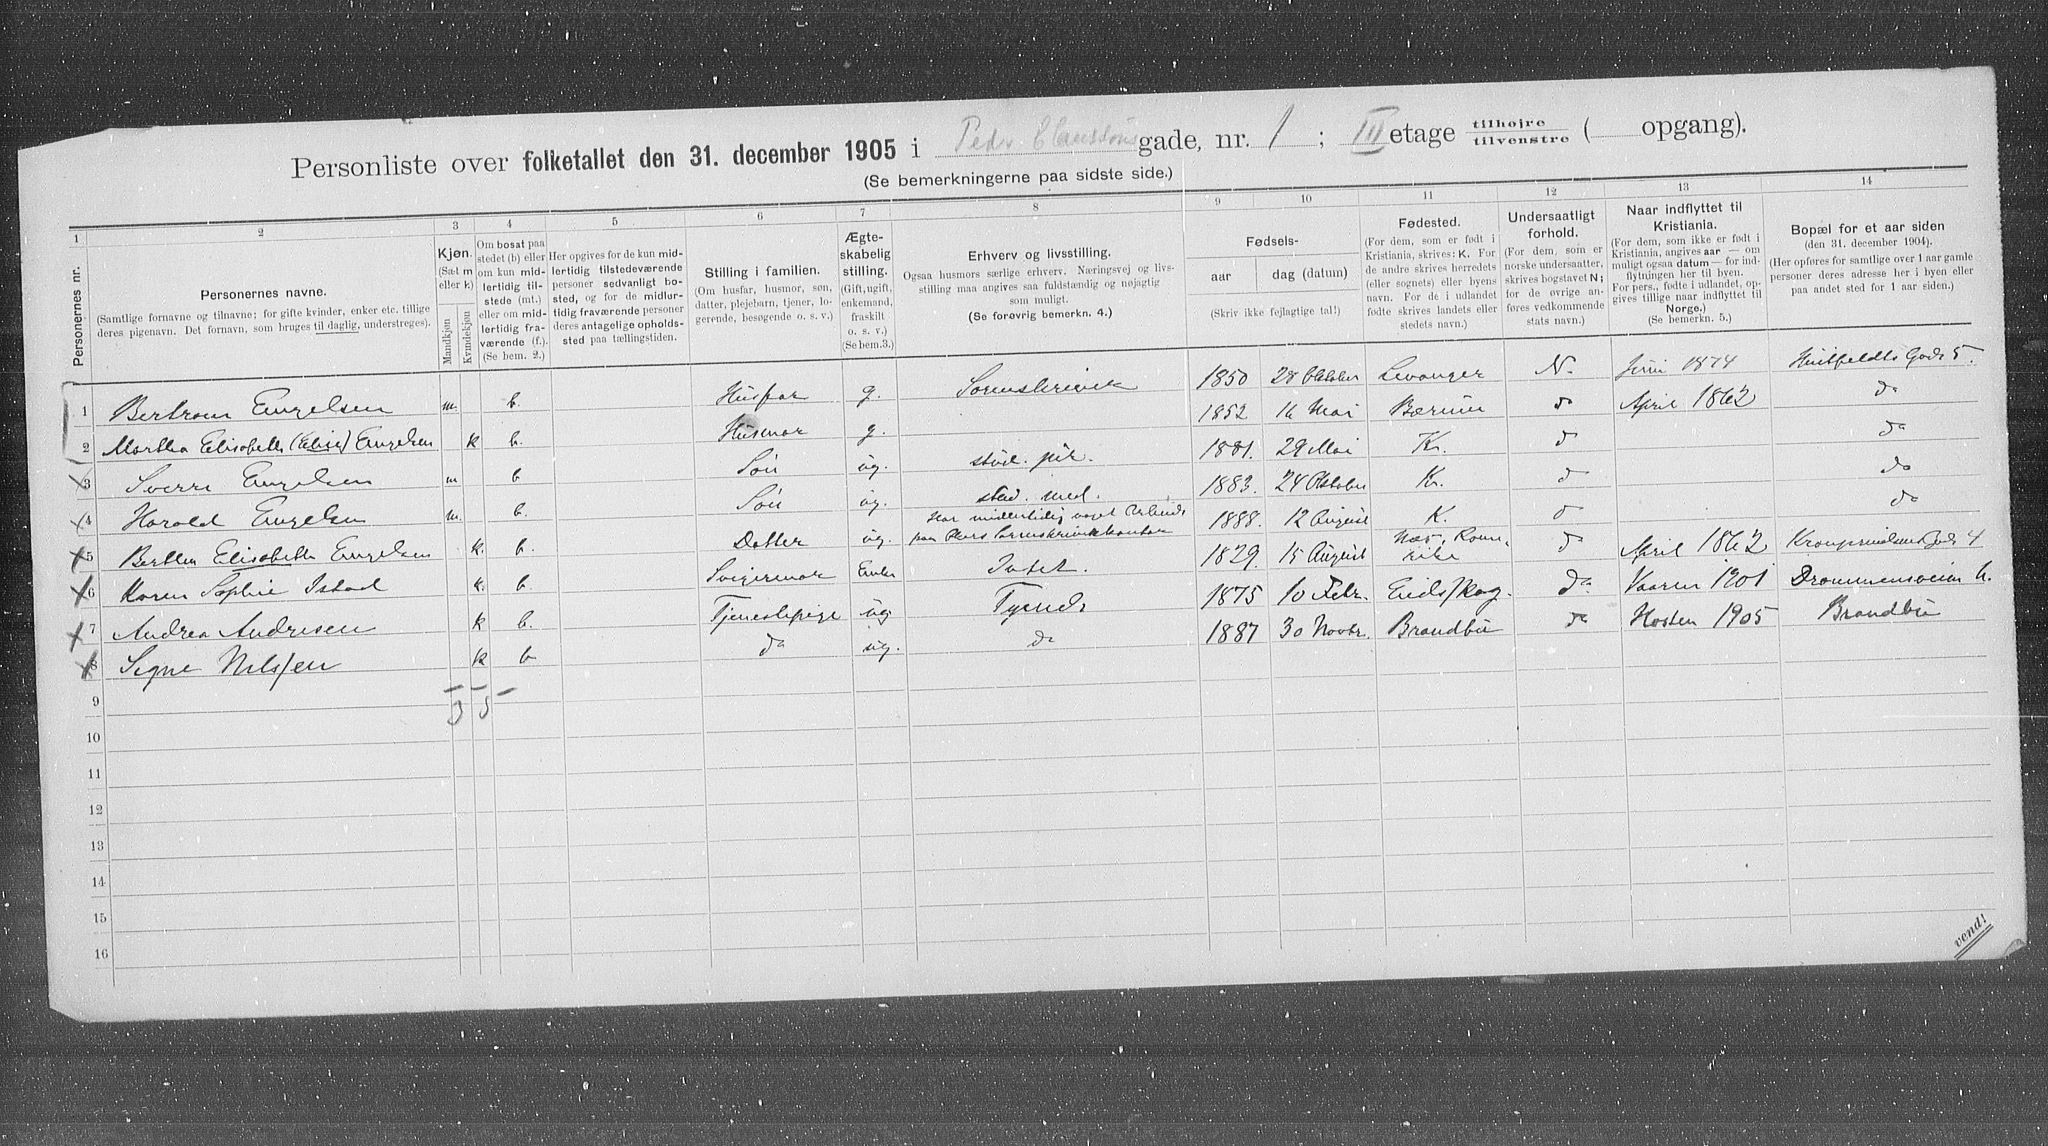 Personliste over folketallet den 31. december 1905 i Peder Claussøns gade, nr. 1 ; III etage tilhøjre tilvenstre ( opgang).
(Se bemerkningerne paa sidste side.)
1 2 3 4 5 6 7 8 9 10 11 12 13 14
Personernes nr.
Personernes navne.
(Samtlige fornavne og tilnavne; for gifte kvinder, enker etc. tillige
deres pigenavn. Det fornavn, som bruges til daglig, understreges).
Kjøn.
(Sæt m
eller k)
Mandkjøn
Kvindekjøn
Om bosat paa
stedet (b) eller
om kun mid-
lertidig til-
stede (mt.)
eller om mid-
lertidig fra-
værende (f.).
(Se bem. 2.)
Her opgives for de kun mid-
lertidig tilstedeværende
personer sedvanligt bo-
sted, og for de midler-
tidig fraværende personer
deres antagelige opholds-
sted paa tællingstiden.
Stilling i familien.
(Om husfar, husmor, søn,
datter, plejebarn, tjener, lo-
gerende, besøgende o. s. v.)
Ægte-
skabelig
stilling.
(Gift, ugift,
enkemand,
fraskilt
o. s. v.)
(Se bem.3.)
Erhverv og livsstilling.
Ogsaa husmors særlige erhverv. Næringsvej og livs-
stilling maa angives saa fuldstændig og nøjagtig
som muligt.
(Se forøvrig bemerkn. 4.)
Fødsels-
aar dag (datum)
(Skriv ikke fejlagtige tal!)
Fødested.
(For dem, som er født i
Kristiania, skrives: K. For
de andre skrives herredets
(eller sognets) eller byens
navn. For de i udlandet
fødte skrives landets eller
stedets navn.)
Undersaatligt
forhold.
(For dem, som er
norske undersaatter,
skrives bogstavet N;
for de øvrige an-
føres vedkommende
stats navn.)
Naar indflyttet til
Kristiania.
(For dem, som ikke er født i
Kristiania, angives aar — om
muligt ogsaa datum — for ind-
flytningen her til byen.
For pers., fødte i udlandet, op-
gives tillige naar indflyttet til
Norge.)
(Se bemerkn. 5.)
Bopæl for et aar siden
(den 31. december 1904).
(Her opføres for samtlige over 1 aar gamle
personer deres adresse her i byen eller
paa andet sted for 1 aar siden.)
1 Bertram Engelsen m. b. Husfar g. Sorenskriver 1850 28 Oktober Levanger N. Juni 1874 Huitfeldts Gade 5.
2 Martha Elisabeth (Elise) Engelsen k b. Husmor g. 1852 16 Mai Bærum d April 1862 do
3 Sverre Engelsen m b Søn ug. stud. phil. 1881. 29 Mai Kr. d do
4 Harald Engelsen m. b. Søn ug. stud. med. 1883. 24 Oktober Kr. d do
5 Berthea Elisabeth Engelsen k. b. Datter ug. Har midlertidig noget Arbeide
paa Fars Sorenskriverkontor 1888. 12 August K. d do
6 Karen Sophie Istad k. b Svigermor Enke Intet. 1829. 15 August Næs, Rome-
rike d April 1862 Kronprindsens Gade 4
7 Andrea Andresen k b. Tjenestepige ug. Tyende 1875 10 Febr. Eidskog do Vaaren 1901 Drammensveien
8 Signe Nilssen k b do ug. do 1887 30 Novbr. Brandbu do Høsten 1905 Brandbu
3 5
9
10
11
12
13
14
15
16
vend!